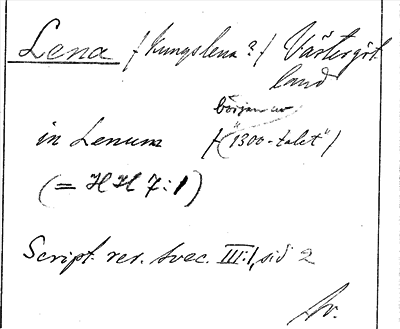 Lena /Kungslena?/ Västergöt
land
början av
in Lenum /("1300-talet")
(= HH 7:1)
Script. rer. svec. III:1, sid 2